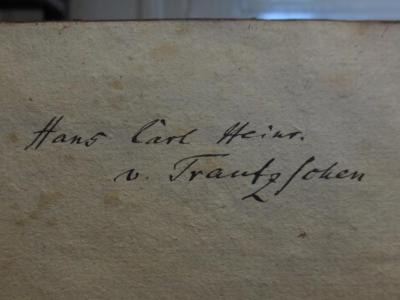 Hans Carl Heinr.
v. Trautzschen